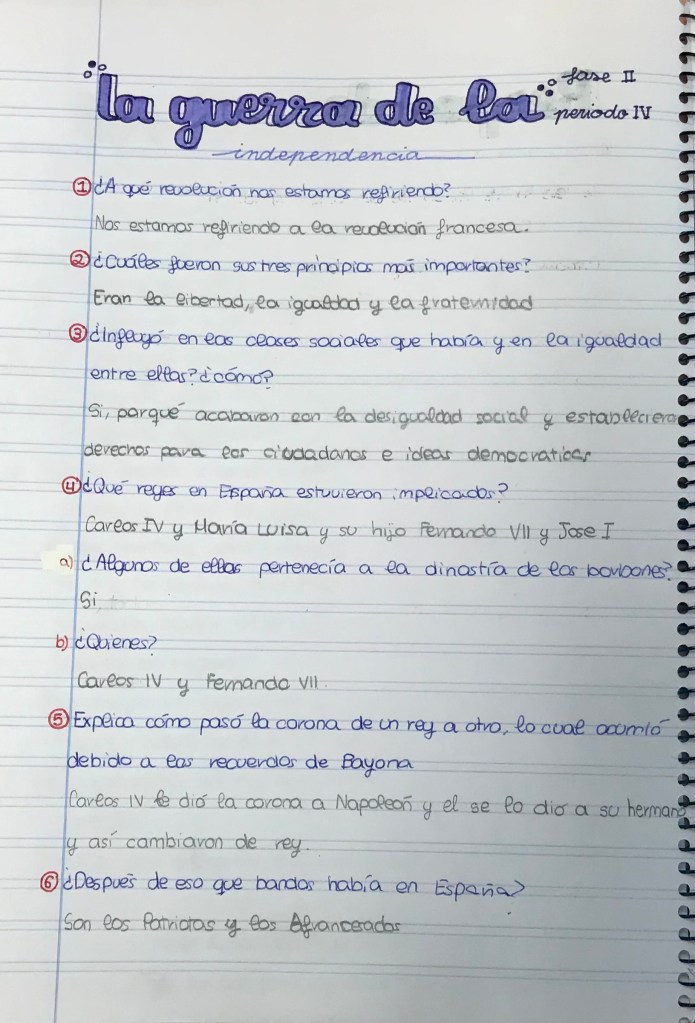 la guerra de la fase II
periodo IV
independencia
① ¿A qué revolución nos estamos refiriendo?
Nos estamos refiriendo a la revolución francesa.
② ¿Cuáles fueron sus tres principios más importantes?
Eran la libertad, la igualdad y la fraternidad
③ ¿Influyó en las clases sociales que había y en la igualdad
entre ellas? ¿cómo?
Si, porqué acabaron con la desigualdad social y establecieron
derechos para los ciudadanos e ideas democraticas
④ ¿Qué reyes en España estuvieron implicados?
Carlos IV y María Luisa y su hijo Fernando VII y Jose I
a) ¿Algunos de ellos pertenecía a la dinastía de los borbones?
Si
b) ¿Quienes?
Carlos IV y Fernando VII.
⑤ Explica cómo pasó la corona de un rey a otro, lo cual ocurrió
debido a los recuerdos de Bayona
Carlos IV le dió la corona a Napoleón y el se lo dio a su hermano
y así cambiaron de rey.
⑥ ¿Después de eso que bandos había en España?
Son los Patriotas y los Afrancesados